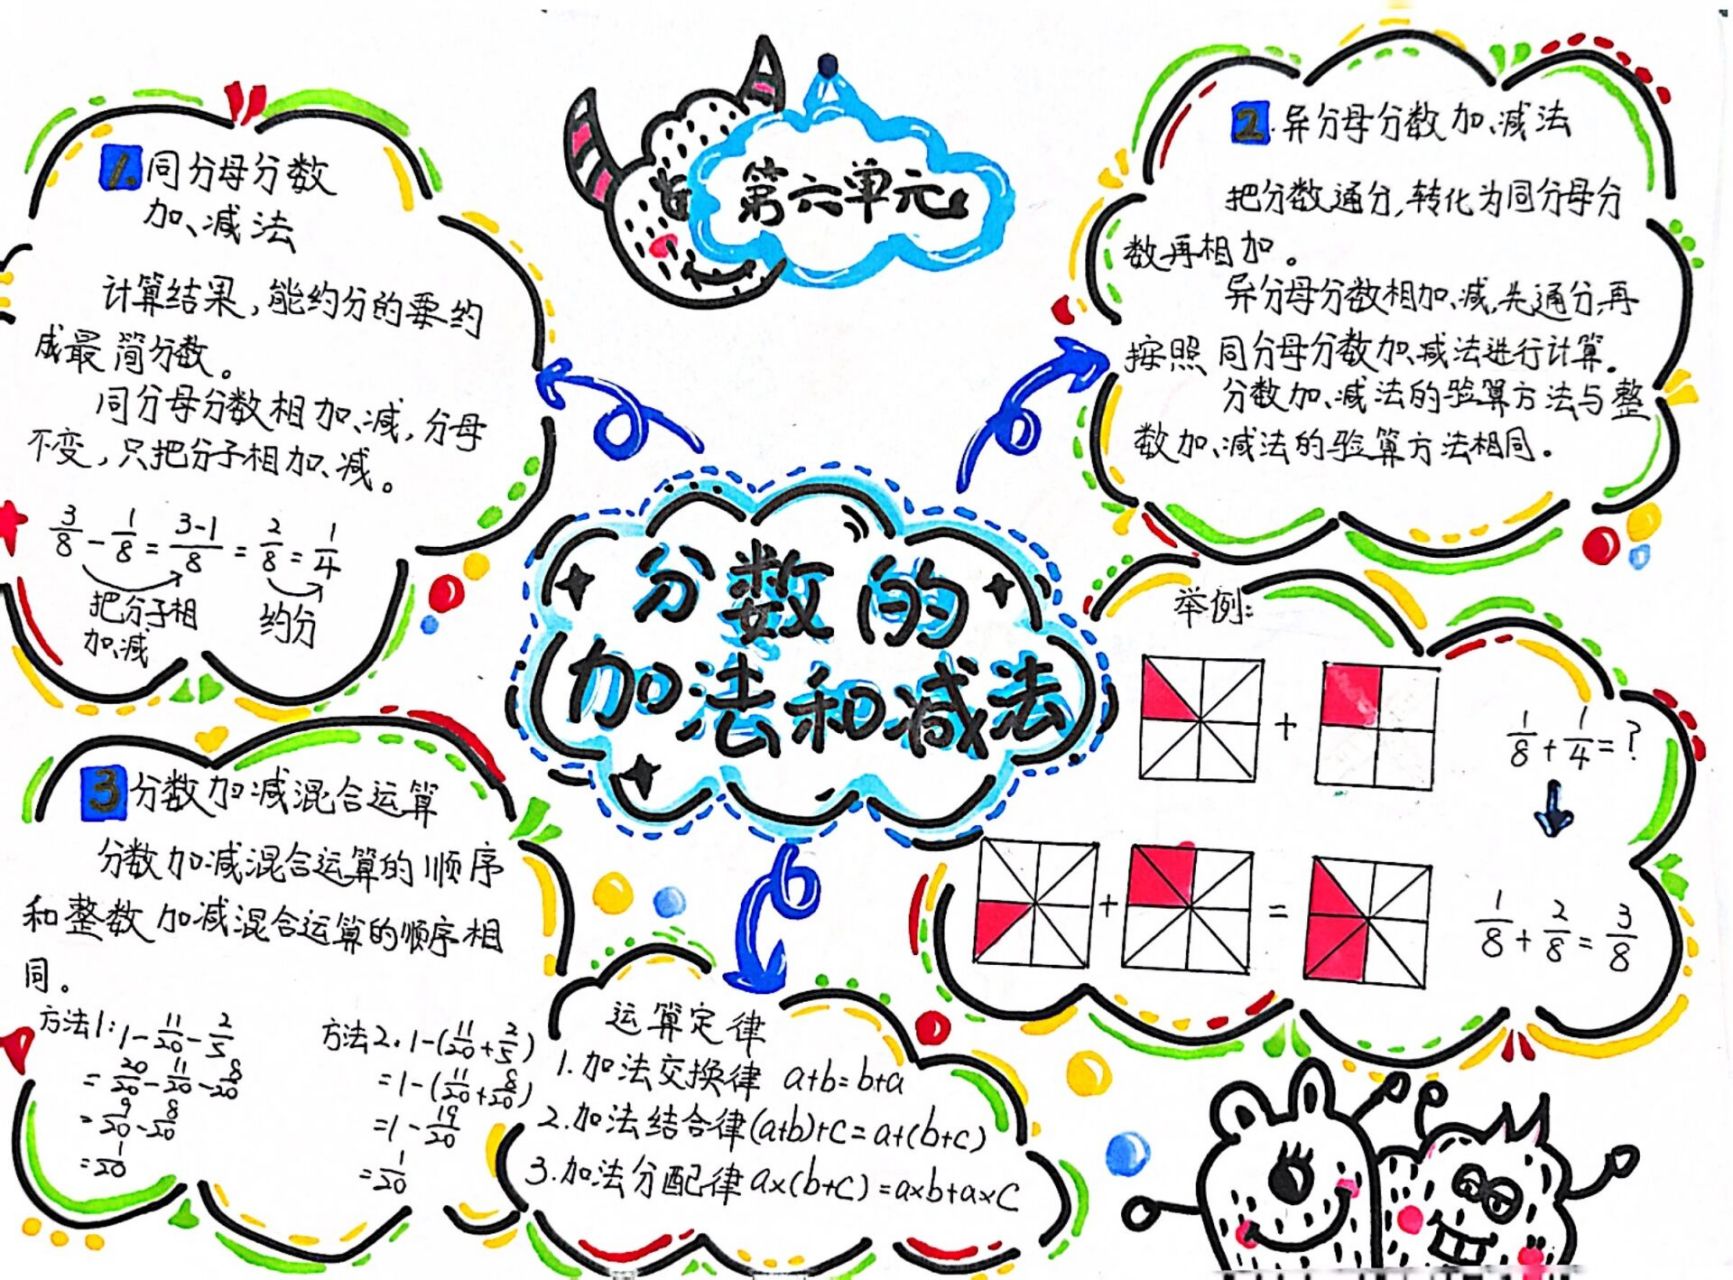 第六单元
分数的
加法和减法
1.同分母分数
加、减法
计算结果，能约分的要约
成最简分数。
同分母分数相加、减，分母
不变，只把分子相加、减。
3/8-1/8=3-1/8=2/8=1/4
把分子相
加、减
约分
2.异分母分数加、减法
把分数通分，转化为同分母分
数再相加。
异分母分数相加、减，先通分，再
按照同分母分数加、减法进行计算。
分数加、减法的验算方法与整
数加、减法的验算方法相同。
举例：
+
1/8+1/4=?
+ =
1/8+2/8=3/8
3分数加减混合运算
分数加减混合运算的顺序
和整数加减混合运算的顺序相
同。
方法1：1-11/20-2/5
=20/20-11/20-8/20
=9/20-8/20
=1/20
方法2.1-(11/20+2/5)
=1-(11/20+8/20)
=1-19/20
=1/20
运算定律
1.加法交换律 a+b=b+a
2.加法结合律(a+b)+c=a+(b+c)
3.加法分配律a×(b+c)=a×b+a×c